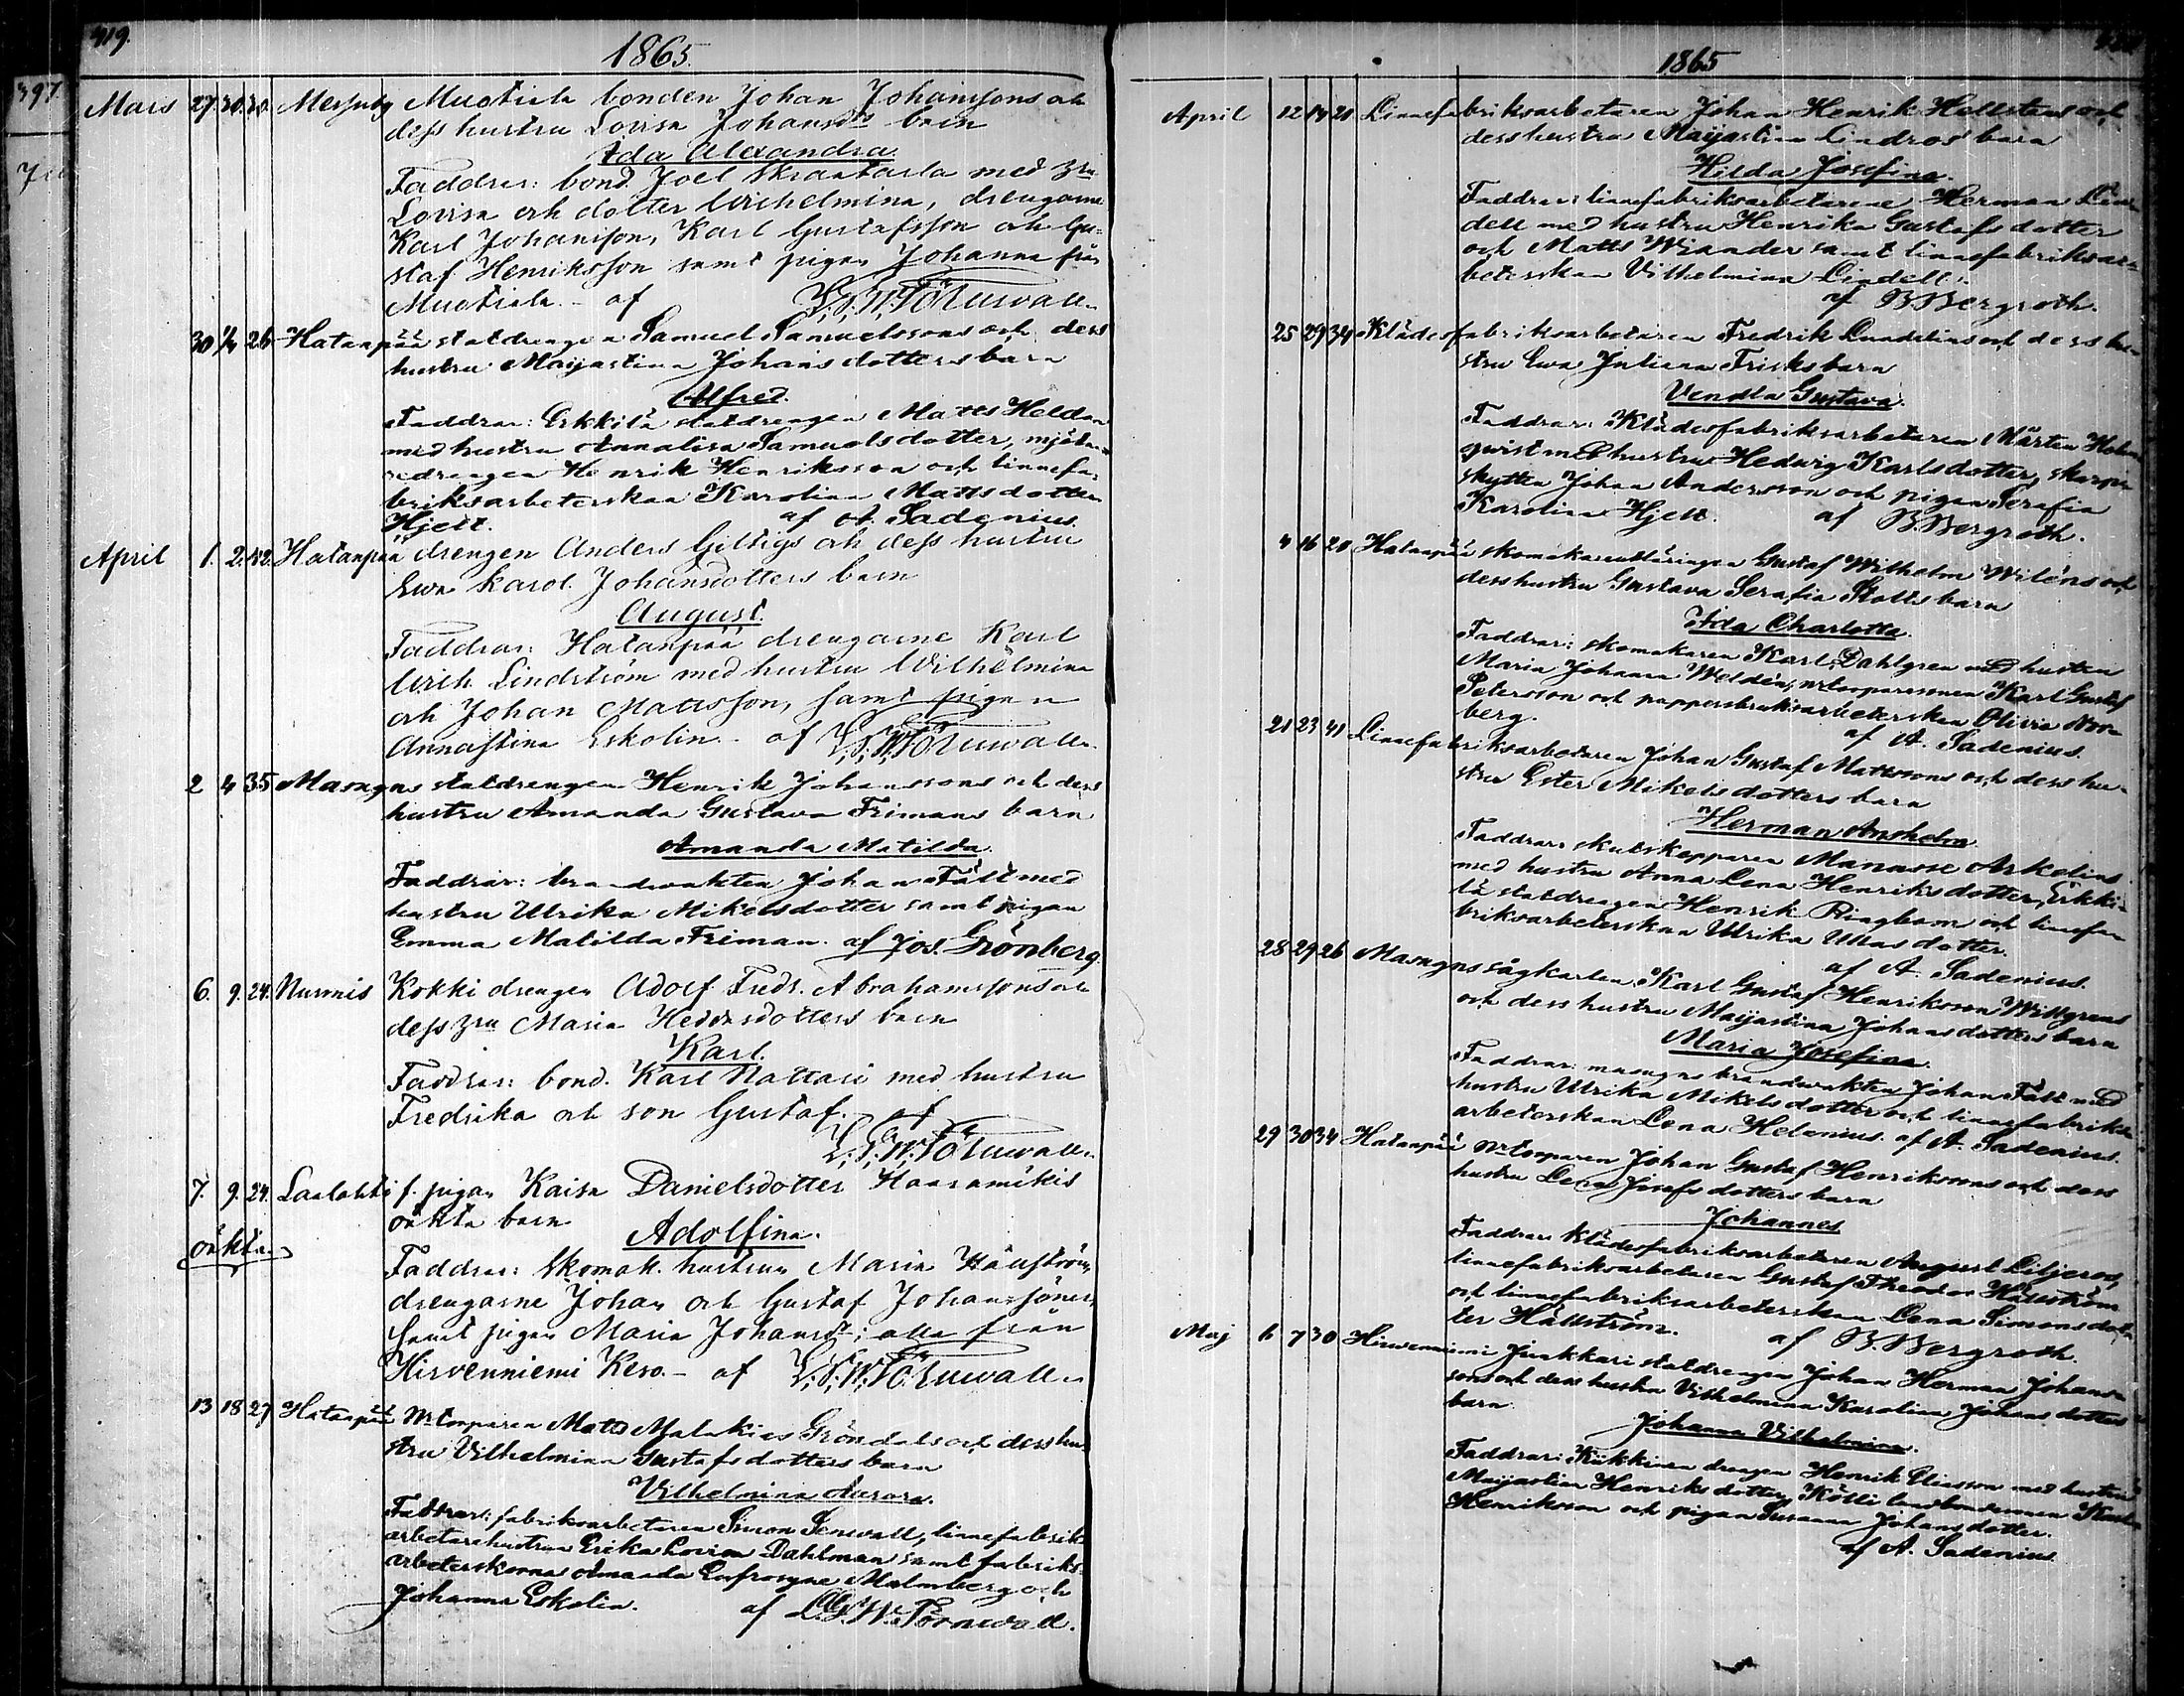 419.
1865.
397.
Mars 27. 30. 30. Messuby Muotiala bonden Johan Johanssons och
dess hustru Lovisa Johansdts barn
Ida Alexandra
Faddrar: bond. Joel Skraatarla med
Lovisa och dotter Ulrihelmina, drengarne
Karl Johansson, Karl Gustafsson och Gu-
staf Henriksson samt pigan Johanna från
Muotiala. - af
30 1/4 26 Hatanpää statdrengen Samuel Samuelssons och dess
hustru Majastina Johansdotters barn
Alfred.
Faddrar: Erkkilä statdrengen Matts Heldan
med hustru Annalisa Samuelsdotter, mjöl-
nedrengen Henrik Henriksson och linnefa-
briksarbeterskan Karolina Mattsdotter
Hjelt. af A. Sadenius.
April 1. 2. 42. Hatanpää drengen Anders Giltigs och dess hustru
Ewa Karol. Johansdotters barn
August.
Faddrar: Hatanpää drengarne Karl
Ulrik Lindström med hustru Wilhelmina
och Johan Mattsson, samt pigan
Annastina Eskolin. - af
2 4 35 Masugns statdrengen Henrik Johanssons och dess
hustru Amanda Gustava Frimans barn
Amanda Matilda.
Faddrar: brandwakten Johan Fält med
hustru Ulrika Mikelsdotter samt pigan
Emma Matilda Friman. af Jos. Grönberg.
6. 9. 24. Nurmis Kokki drengen Adolf Fredr. Abrahamssons och
dess Maria Heddasdotters barn
Karl.
Faddrar: bond. Karl Nattari med hustru
Fredrika och son Gustaf. - af
7. 9. 24. Laalahti f. pigan Kaisa Danielsdotter Haaramäkis
oäkta oäkta barn
Adolfina.
Faddrar: Skomak. hustrun Maria
drengarne Johan och Gustaf Johanssöner,
samt pigan Maria Johansdr; alla från
Hirvenniemi Kero. - af
13 18 27 Hatanpää Nr torparen Matts Malakias Gröndals och dess hu-
stru Vilhelmina Gustafsdotters barn
Vilhelmina Aurora.
Faddrar: fabriksarbetaren Simon Senwall, linnefabriks-
arbetarehustrun Erika Lovisa Dahlman samt fabriks-
arbeterskorna Amanda Eufrosyne Malmberg och
Johanna Eskolin. af L.G.W. Törnwall.
1865
April 12 14 21 Linnefabriksarbetaren Johan Henrik Hellstens och
dess hustru Maijastina Lindros' barn
Hilda Josefina.
Faddrar: linnefabriksarbetarene Herman Lin-
dell med hustru Henrika Gustafsdotter
och Matts Wiander samt linnefabriksar-
beterskan Vilhelmina Lindell.
af B. Bergroth.
25 29 34 Klädesfabriksarbetaren Fredrik Lundelins och dess hu-
stru Ewa Juliana Frisks barn
Vendla Gustava.
Faddrar: Klädesfabriksarbetaren Mårten Holm-
qvist med hustru Hedwig Karlsdotter, skarp-
skytten Johan Andersson och pigan Serafia
Karolina Hjelt. af B. Bergroth.
4 16 20 Hatanpää skomakareutläringen Gustaf Wilhelm Wiléns och
dess hustru Gustava Serafia Stolts barn
Ida Charlotta.
Faddrar: skomakaren Karl Dahlgren med hustru
Maria Johanna Weldén, nr torparesonen Karl Gustaf
Petersson och pappersbruksarbeterskan Olivia Nor-
berg. af A. Sadenius.
21 23 41 Linnefabriksarbetaren Johan Gustaf Mattssons och dess hu-
stru Ester Mikelsdotters barn
Herman Anshelm
Faddrar: skutskepparen Manasse Arkelius
med hustru Anna Lena Henriksdotter, Erkki-
lä statdrengen Henrik Ringbom och linnefa-
briksarbeterskan Ulrika Ullasdotter.
af A. Sadenius.
28 29 26 Masugns sågkarlen Karl Gustaf Henriksson Willgrens
och dess hustru Maijastina Johansdotters barn
Maria Josefina.
Faddrar: masugns brandwakten Johan Fält med
hustru Ulrika Mikelsdotter och linnefabriks-
arbeterskan Lena Helenius. af A. Sadenius.
29 30 34 Hatanpää Nr torparen Johan Gustaf Henrikssons och dess
hustru Lena Josefsdotters barn
Johannes
Faddrar: klädesfabriksarbetaren August Liljeros,
linnefabriksarbetaren Gustaf Theodor Hällström
och linnefabriksarbeterskan Lena Simonsdot-
ter Hällström. af B. Bergroth.
Maj 6 7 30 Hirwenniemi Junkkari statdrengen Johan Herman Johans-
sons och dess hustru Vilhelmina Karolina Johansdotters
barn
Johanna Vilhelmina.
Faddrar: Kukkinen drengen Henrik Eliasson med hustru
Maijastina Henriksdotter, Kölli landbondesonen
Henriksson och pigan Susanna Johansdotter.
af A. Sadenius.